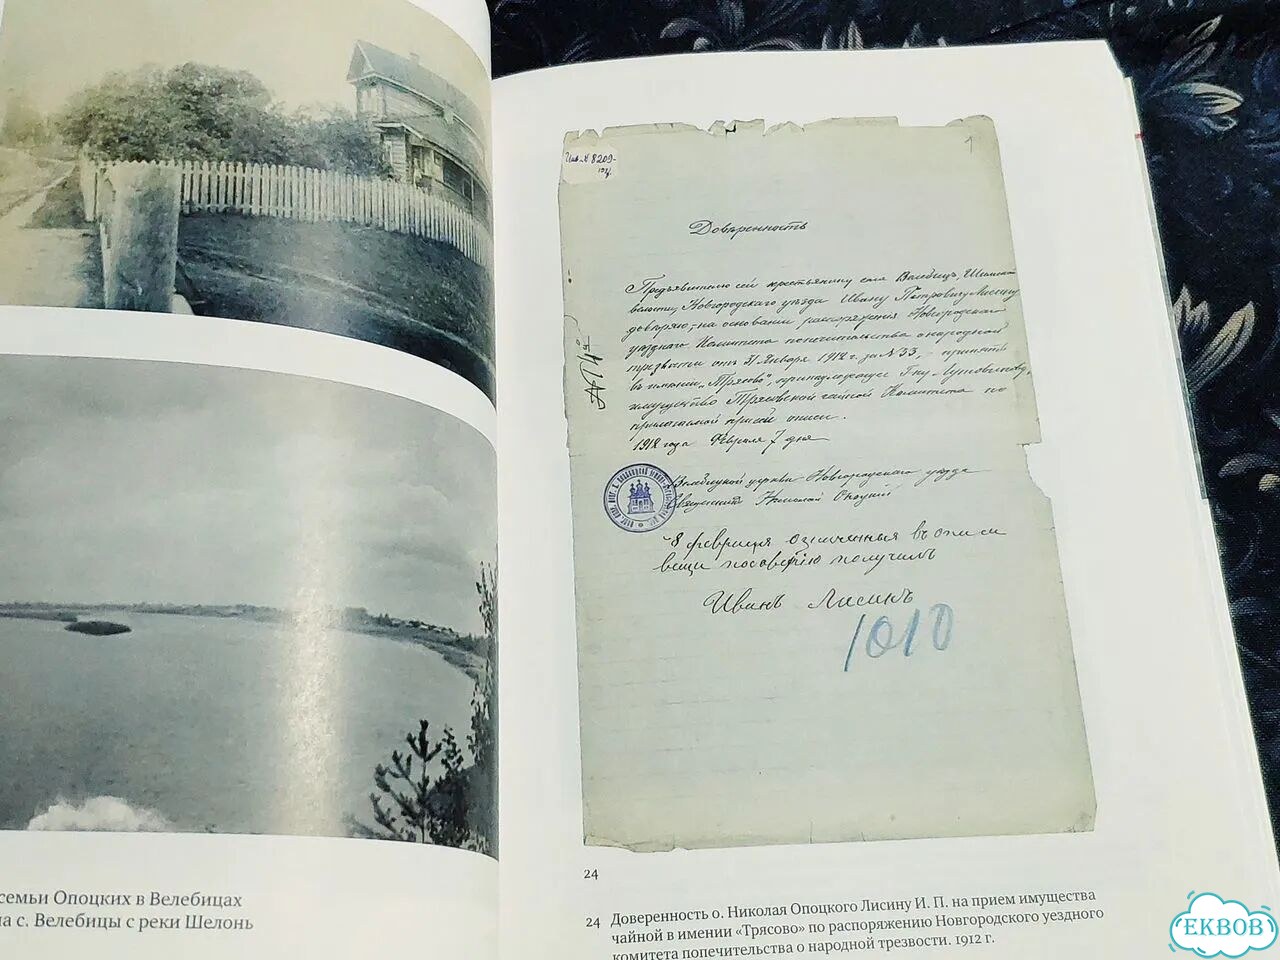 семьи Опоцких в Велебицах
на с. Велебицы с реки Шелонь
Инв. № 8209-
1
Довѣренность
Предъявителю сей крестьянину села Велебицъ, Шелонской
волости, Новгородскаго уѣзда Ивану Петровичу Лисину
довѣряю, на основании распоряженія Новгородскаго
уѣзднаго Комитета попечительства о народной
трезвости отъ 31 Января 1912 г. за № 33, принять
въ имении „Трясово", принадлежащее Г-ну
имущество Трясовской чайной Комитета по
прилагаемой при семъ описи.
1912 года Февраля 7 дня
Велебицкой церкви Новгородскаго уѣзда
Священникъ Николай Опоцкий
8 февраля означенныя въ описи
вещи по доверію получилъ
Иванъ Лисинъ
1010
24
24 Доверенность о. Николая Опоцкого Лисину И. П. на прием имущества
чайной в имении «Трясово» по распоряжению Новгородского уездного
комитета попечительства о народной трезвости. 1912 г.
ЕКВОВ